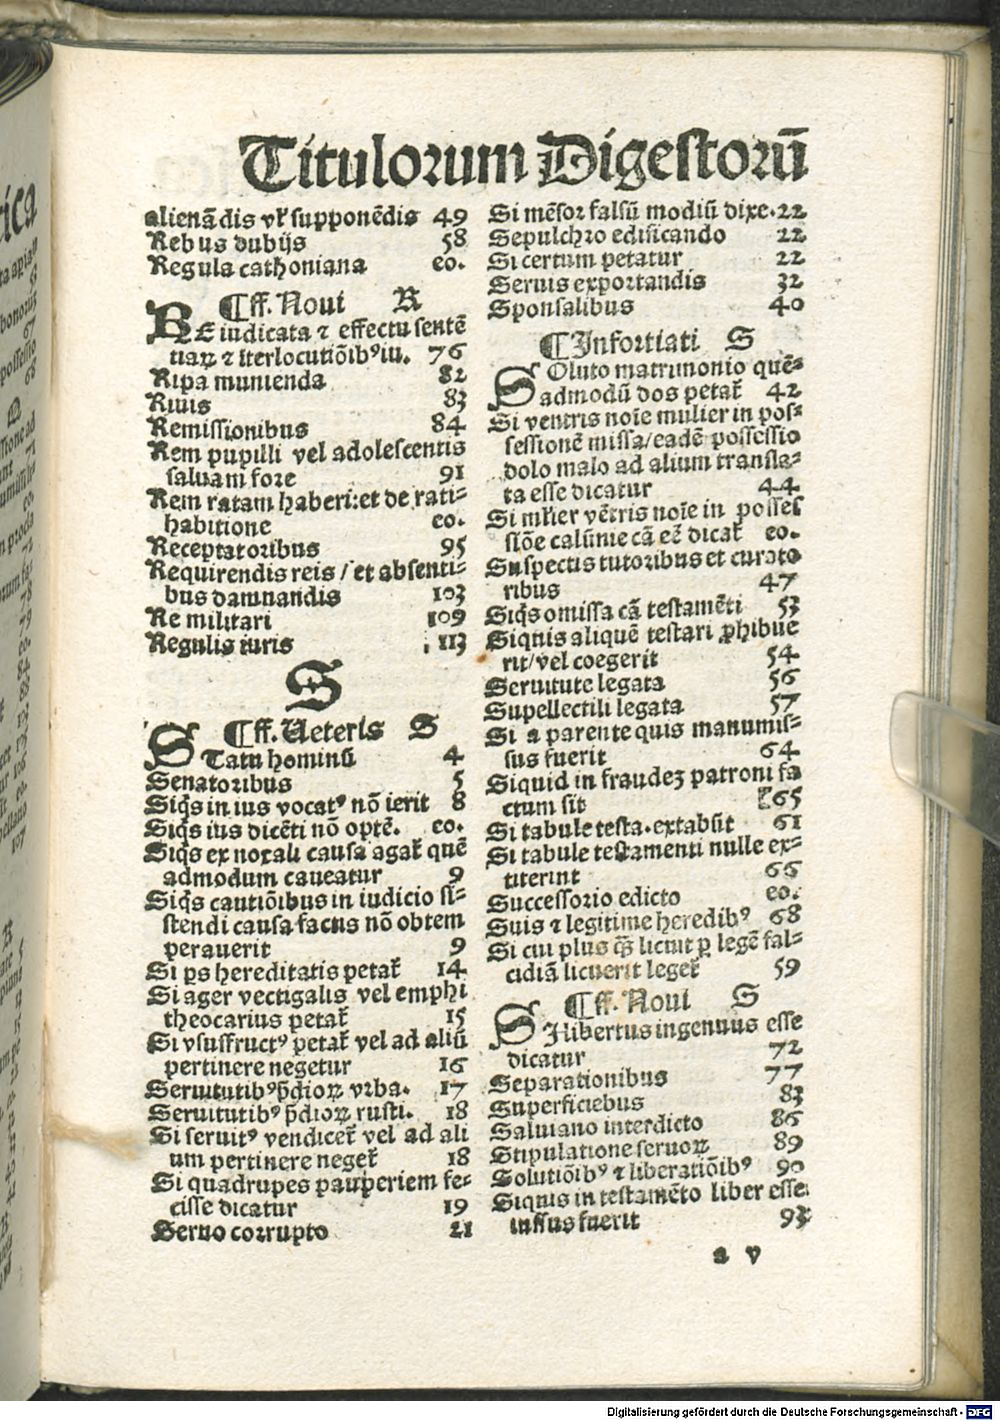 Titulorum Digestorū
alienādis vł supponēdis 49
Rebus dubijs 58
Regula cathoniana eo.
¶ff. Noui R
RE iudicata ⁊ effectu sentē
tiaꝝ ⁊ īterlocutiōibꝰ iu. 76
Ripa munienda 82
Riuis 83
Remissionibus 84
Rem pupilli vel adolescentis
saluam fore 91
Rem ratam haberi: et de rati-
habitione eo.
Receptatoribus 95
Requirendis reis / et absenti-
bus damnandis 103
Re militari 109
Regulis iuris 113
S
¶ff. Ueteris S
STatu hominū 4
Senatoribus 5
Siqͥs in ius vocatꝰ nō ierit 8
Siqͥs ius dicēti nō optē. eo.
Siqͥs ex noxali causa agat᷑ quē
admodum caueatur 9
Siqͥs cautiōibus in iudicio si-
stendi causa factus nō obtem
perauerit 9
Si ps hereditatis petat᷑ 14
Si ager vectigalis vel emphi
theocarius petat᷑ 15
Si vsusfructꝰ petat᷑ vel ad aliū
pertinere negetur 16
Seruitutibꝰ p̄dioꝝ vrba. 17
Seruitutibꝰ p̄dioꝝ rusti. 18
Si seruitꝰ vendicet᷑ vel ad ali
um pertinere neget᷑ 18
Si quadrupes pauperiem fe-
cisse dicatur 19
Seruo corrupto 21
Si mēsor falsū modiū dixe. 22
Sepulchro edificando 22
Si certum petatur 22
Seruis exportandis 32
Sponsalibus 40
¶Infortiati S
SOluto matrimonio quē-
admodū dos petat᷑ 42
Si ventris noīe mulier in pos-
sessionē missa/eadē possessio
dolo malo ad alium transla-
ta esse dicatur 44
Si mƚier vētris noīe in posses
siōe calūnie cā eē dicat᷑ eo.
Suspectis tutoribus et curato
ribus 47
Siqͥs omissa cā testamēti 53
Siquis aliquē testari ꝓhibue
rit/vel coegerit 54
Seruitute legata 56
Supellectili legata 57
Si a parente quis manumis-
sus fuerit 64
Siquid in fraudeꝫ patroni fa
ctum sit 65
Si tabule testa. extabsit 61
Si tabule testamenti nulle ex-
titerint 66
Successorio edicto eo.
Suis ⁊ legitime heredibꝰ 68
Si cui plus q̄ꝫ licuit ꝑ legē fal-
cidiā licuerit leget᷑ 59
¶ff. Noui S
SI libertus ingenuus esse
dicatur 72
Separationibus 77
Superficiebus 83
Saluiano interdicto 86
Stipulatione seruoꝝ 89
Solutiōibꝰ ⁊ liberatiōibꝰ 90
Siquis in testamēto liber esse
iussus fuerit 93
a v
Digitalisierung gefördert durch die Deutsche Forschungsgemeinschaft - DFG